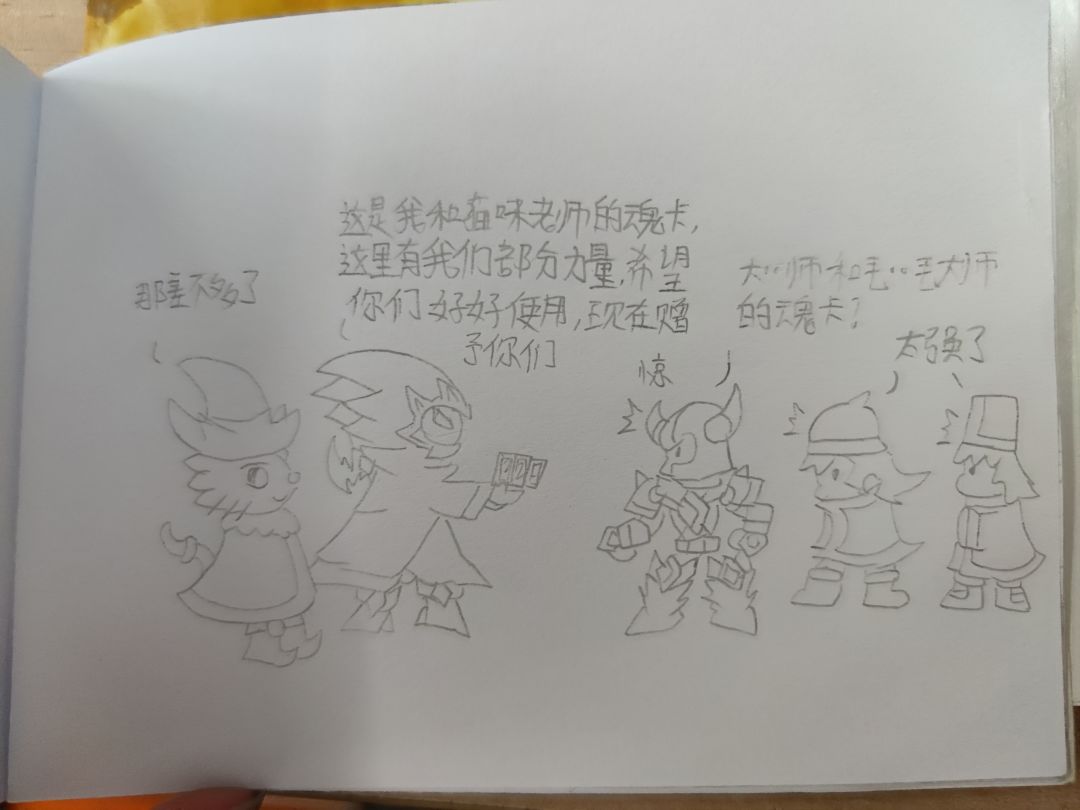 那差不多了
这是我和猫咪老师的魂卡，
这里有我们部分力量，希望
你们好好使用，现在赠
予你们
惊
大……师和毛……毛大师
的魂卡？
太强了